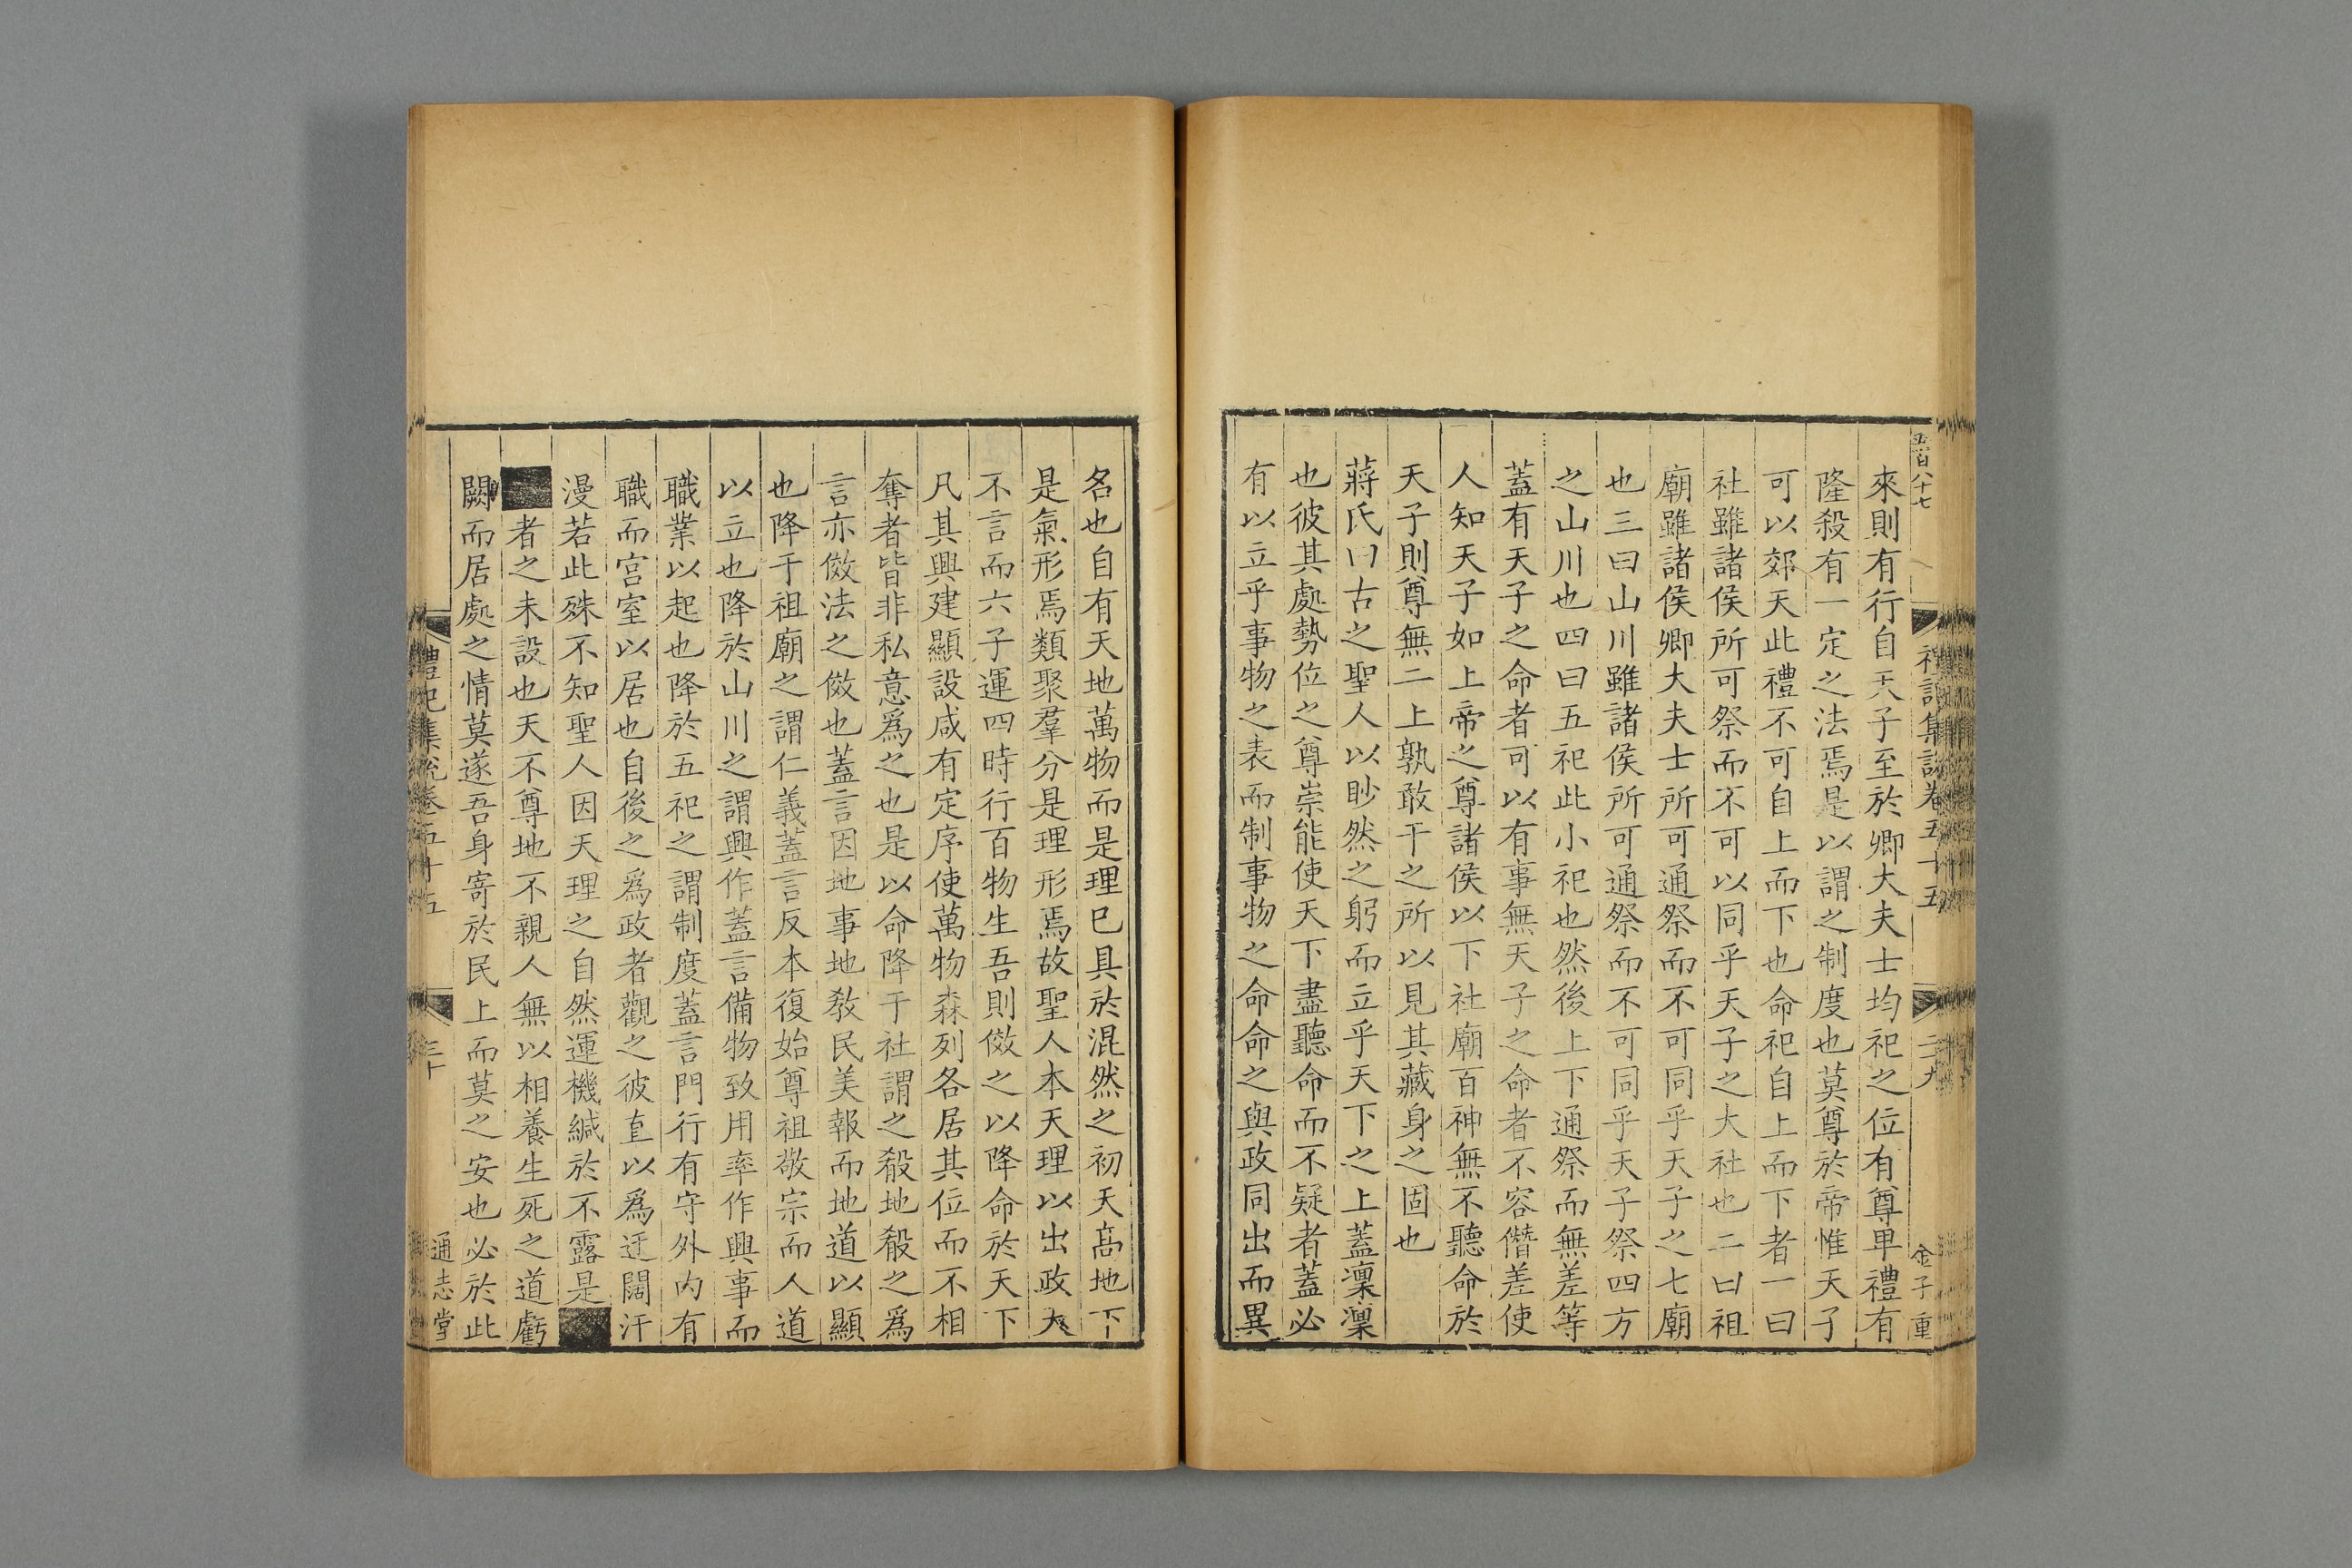 五百八十七
禮記集說卷五十五
二十九
金子重
來則有行自天子至於卿大夫士均祀之位有尊卑禮有
隆殺有一定之法焉是以謂之制度也莫尊於帝惟天子
可以郊天此禮不可自上而下也命祀自上而下者一曰
社雖諸侯所可祭而不可以同乎天子之大社也二曰祖
廟雖諸侯卿大夫士所可通祭而不可同乎天子之七廟
也三曰山川雖諸侯所可通祭而不可同乎天子祭四方
之山川也四曰五祀此小祀也然後上下通祭而無差等
蓋有天子之命者可以有事無天子之命者不容僭差使
人知天子如上帝之尊諸侯以下社廟百神無不聽命於
天子則尊無二上孰敢干之所以見其藏身之固也
蔣氏曰古之聖人以眇然之躬而立乎天下之上蓋凜凜
也彼其處勢位之尊崇能使天下盡聽命而不疑者蓋必
有以立乎事物之表而制事物之命命之與政同出而異
名也自有天地萬物而是理已具於混然之初天高地下
是氣形焉類聚羣分是理形焉故聖人本天理以出政大
不言而六子運四時行百物生吾則傚之以降命於天下
凡其興建顯設咸有定序使萬物森列各居其位而不相
奪者皆非私意爲之也是以命降于社謂之殽地殽之爲
言亦傚法之傚也蓋言因地事地教民美報而地道以顯
也降于祖廟之謂仁義蓋言反本復始尊祖敬宗而人道
以立也降於山川之謂興作蓋言備物致用率作興事而
職業以起也降於五祀之謂制度蓋言門行有守外內有
職而宮室以居也自後之爲政者觀之彼直以爲迂闊汗
漫若此殊不知聖人因天理之自然運機緘於不露是
者之未設也天不尊地不親人無以相養生死之道虧
闕而居處之情莫遂吾身寄於民上而莫之安也必於此
禮記集說卷五十五
三十
通志堂